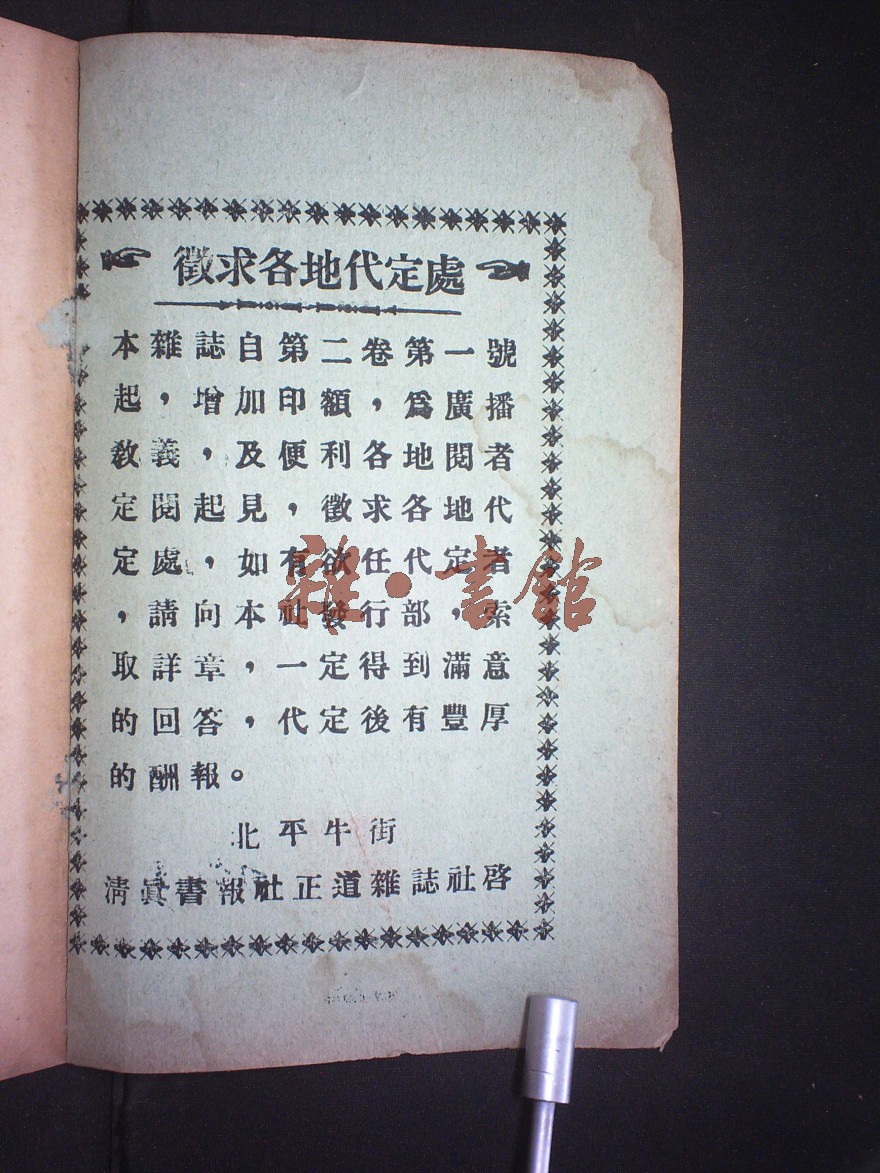 徵求各地代定處
本雜誌自第二卷第一號
起，增加印額，爲廣播
敎義，及便利各地閱者
定閱起見，徵求各地代
定處，如有欲任代定者
，請向本社發行部，索
取詳章，一定得到滿意
的回答，代定後有豐厚
的酬報。
北平牛街
淸眞書報社正道雜誌社啓
雜·書館